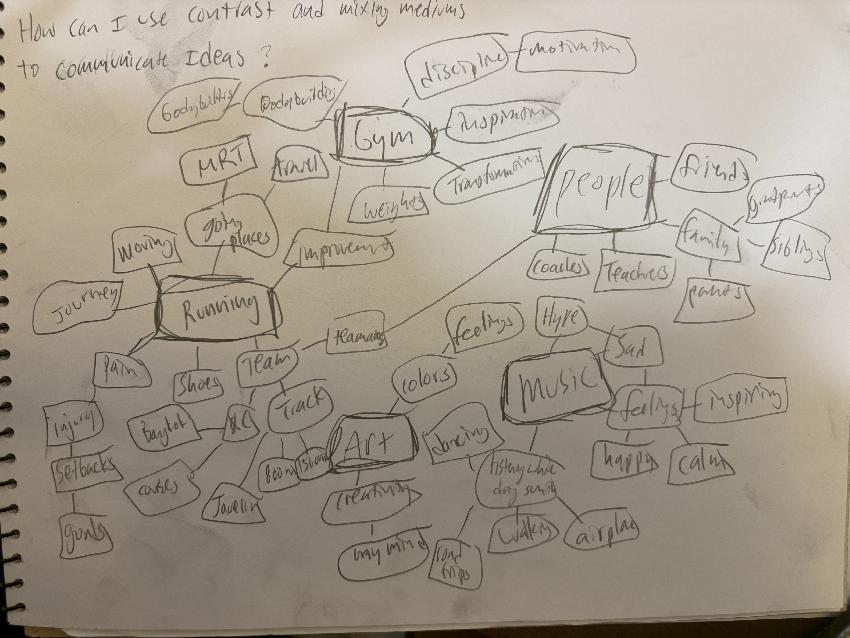 How can I use contrast and mixing mediums
to communicate Ideas?
discipline
motivation
Bodybuilding
Gym
inspiration
MRT
travel
Transformation
weights
People
friends
family
siblings
going
places
improvement
moving
coaches
Teachers
parents
Journey
Running
teamates
feelings
Hype
Sad
Pain
Shoes
Team
colors
Music
XC
Track
feelings
inspiring
injury
Art
dancing
happy
calm
Setbacks
courses
Javelin
creativity
walking
airplane
goals
my mind
road
trips